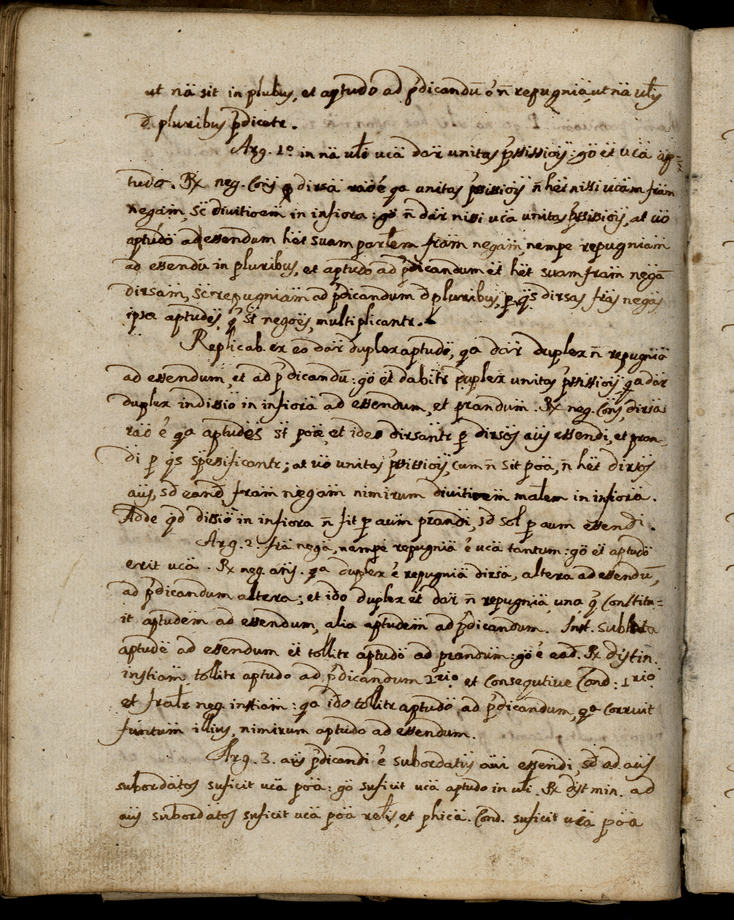 ut nã sit in plubus, et aptudo ad p̃dicandũ ẽ ñ repugniã, ut nã ulis
d̃ pluribus p̃dicetr.
Arg. 1º in nã uli ucã dar̃ unitas p̃ssissiois: go et ucã ap=
tudo. Rx neg. Cons̃ dirsã rãdẽ qa unitas p̃sisiois ñ het nissi ucam fram
negam, sc̃ divitioem in infiora: go ñ dar̃ nissi ucã unitas p̃ssisiois, at uo
aptudo ad essendum het suam parlem fram negam, nempe repugniam
ad essendũ in pluribus, et aptudo ad p̃dicandum et het suam fram negã
dirsam, sc̃ repugniam ad p̃dicandum d̃ pluribus, p qs dirsas fras negas
ipsæ aptudes, q̃ st negoes, multiplicantr.
Replicab. ex eo dar̃ duplex aptudo, qa dar̃ duplex ñ repugniã
ad essendum, et ad p̃dicandũ: go et dabitr puplex unitas p̃ssissiois qa dar̃
duplex indissio in infiora ad essendum, et prandum. Rx neg. Cons̃, dirsa
rão ẽ qa aptudes st poæ, et ideo dirsantr p dirsos aus essendi, et pran=
di p qs spesificantr; at uo unitas p̃ssissiois, cum ñ sit poã, ñ het dirsos
aus, sd eand fram negam nimirum divitioem malem in infiora.
Adde qd dissio in infiora ñ fit p aum prandi, sd sol p aum essendi.
Arg. 2. frã negã, nempe repugniã ẽ ucã tantum: go et aptudo
erit ucã. Rx neg. ans̃. qa duplex ẽ repugniã dirsã, altera ad essendũ,
ad p̃dicandum altera; et ido duplex et dar̃ ñ repugniã, una q̃ Constitu=
it aptudem ad essendum, alia aptudem ad p̃dicandum. Inst. sublata
aptude ad essendum et tollitr aptudo ad prandum: go ẽ ead. Rx distin.
instiam tollitr aptudo ad p̃dicandum 2rio et Consequtive Cond. 1rio
et fralr neg. instiam: qa ido tollitr aptudo ad p̃dicandum, qa Corruit
funtum illius, nimirum aptudo ad essendum.
Arg. 3. aus p̃dicandi ẽ subordatus aui essendi, sd ad aus
subordatos suficit ucã poã: go suficit ucã aptudo in uli. Rx dist min. ad
aus subordatos suficit ucã poã relis, et phicã. Cond. suficit ucã poã